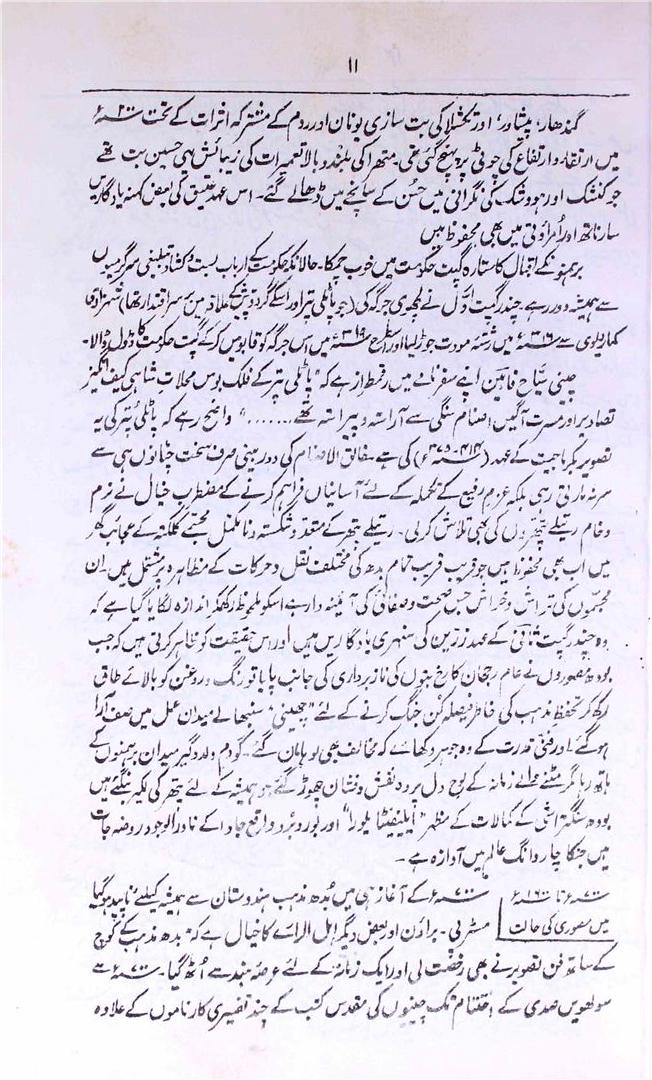 ۱۱
گندھار، پشاور، اور تکشلا کی بت سازی یونان اور روم کے مشترکہ اثرات کے تحت ۲۰۰ء
میں ارتقاء و ارتفاع کی چوٹی پر پہنچ گئی تھی۔ متھرا کی بلند و بالا تعمیرات کی زیبائش ہی حسین بت تھے
جو کنشک اور ہووشک کی نگرانی میں حسن کے سانچے میں ڈھالے گئے۔ اس عہد عتیق کی بعض کہنہ یادگاریں
سارناتھ اور اُمراوتی میں بھی محفوظ ہیں
برہمنوں کے اقبال کا ستارہ گپت حکومت میں خوب چمکا۔ حالانکہ حکومت کے ارباب بست و کشاد تبلیغی سرگرمیوں
سے ہمیشہ دور رہے۔ چندر گپت اوّل نے لچھوی جرگہ کی (جو پاٹلی پتر اور اسکے گرد و پیش کے علاقہ میں برسراقتدار تھا) شہزادی
کمار دیوی سے ۳۱۶ء میں رشتۂ مودت جوڑ لیا اور اسطرح ۳۱۹ء میں اس جرگہ کو قابو میں کرکے گپت حکومت کا ڈول ڈالا۔
چینی سیاح فاہین اپنے سفرنامے میں رقمطراز ہے کہ "پاٹلی پتر کے فلک بوس محلات شاہی کیف انگیز
تصاویر اور مسرت آگیں اصنام سنگی سے آراستہ و پیراستہ تھے ......." واضح رہے کہ پاٹلی پتر کی یہ
تصویر بکرماجیت کے عہد (۴۱۴-۳۷۵ء) کی ہے۔ خالق الاصنام کی دوربینی صرف سخت چٹانوں ہی سے
سر نہ مارتی رہی بلکہ عزم رفیع کے تکملہ کے لئے آسانیاں فراہم کرنے کے مضطرب خیال نے نرم
و خام ریتیلے پتھروں کی بھی تلاش کرلی۔ ریتیلے پتھر کے متعدد شکستہ و نامکمل مجسمے کلکتہ کے عجائب گھر
میں اب بھی محفوظ ہیں جو قریب قریب تمام بدھ کی مختلف نقل و حرکات کے مظاہرہ پر مشتمل ہیں۔ ان
مجسموں کی تراش و خراش جس صحت و صفائی کی آئینہ دار ہے اسکو ملحوظ رکھکر اندازہ لگایا گیا ہے کہ
وہ چندر گپت ثانی کے عہد زرین کی سنہری یادگاریں ہیں اور اس حقیقت کو ظاہر کرتی ہیں کہ جب
بودھ مصوروں نے عام رجحان کا رخ بتوں کی ناز برداری کی جانب پایا تو رنگ و روغن کو بالائے طاق
رکھ کر تحفظ مذہب کی خاطر فیصلہ کن جنگ کرنے کے لئے "چھینی" سنبھالے میدان عمل میں صف آرا
ہوگئے۔ اور فنی قدرت کے وہ جوہر دکھائے کہ مخالف بھی لوہا مان گئے۔ گو دم و لد دگیر میدان برہمنوں کے
ہاتھ رہا مگر مٹنے والے زمانہ کے لوح دل پر وہ نقش و نشان چھوڑ گئے جو ہمیشہ کے لئے پتھر کی لکیر بنگئے ہیں
بودھ سنگتراشی کے کمالات کے مظہر "ایلیفنٹا ایلورا" اور بوروبُدر واقع جاوا کے نادر الوجود روضہ جات
ہیں جنکا چار دانگ عالم میں آوازہ ہے۔
۷۰۰ء تا ۱۶۰۰ء میں مصوری کی حالت
۷۰۰ء کے آغاز ہی میں بُدھ مذہب ہندوستان سے ہمیشہ کیلئے ناپید ہوگیا
مسٹر پی۔ براؤن اور بعض دیگر اہل الرائے کا خیال ہے کہ "بدھ مذہب کے کوچ
کے ساتھ فن تصویر نے بھی رخصت لی اور ایک زمانہ کے لئے عرصۂ ہند سے اُٹھ گیا۔ ۷۰۰ء سے
سولھویں صدی کے اختتام تک جینیوں کی مقدس کتب کے چند تفسیری کارناموں کے علاوہ